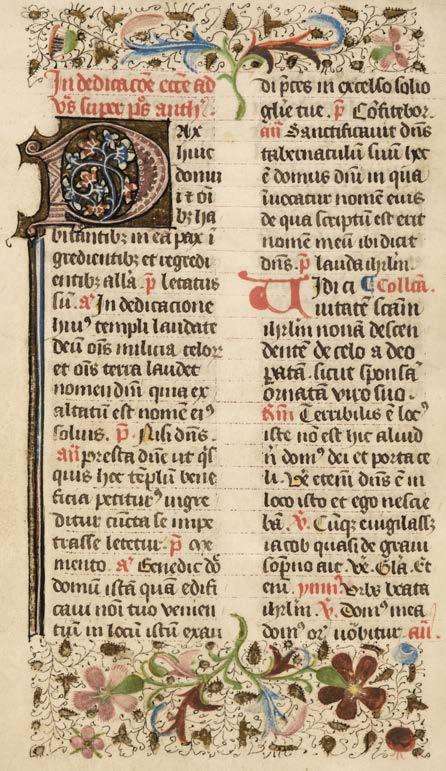 In dedicacōe eccē ad
vs̄ super ps̄ anthꝰ.
PAx
huic
domui
i ⁊ oī
bꝫ ha
bitantibꝫ in ea pax ī
gredientibꝫ et regredi
entibꝫ all̄a. p̄ letatus
sū. a In dedicacione
huiꝰ templi laudate
deū oīs milicia celor
et oīs terra laudet
nomen dn̄i quia ex
altatū est nomē eiꝰ
soluis. p̄. Nisi dn̄s.
an̄ presta dn̄e ut qs̄
quis hoc templū bene
ficia petiturꝰ ingre
ditur cuncta se impe
trasse letetur. p̄ me
mento. a Benedic dn̄
domū istā quā edifi
caui nōi tuo venien
tiū in locū istū exau
di p̄ces in excelso solio
glīe tue. p̄ Cōfitebor.
an̄ Sanctificauit dn̄s
tabernaculū suū hec
ē domus dn̄i in qua
inuocatur nomē eius
de qua scriptū est erit
nomē meū ibi dicit
dn̄s. p̄ lauda ihrl̄m.
UIdi ci Collca.
uitatē scām
ihrl̄m nouā descen
dentē de celo a deo
p̄atā. sicut sponsā
ornatā viro suo.
Rm̄ Terribilis ē locꝰ
iste nō est hic aliud
n̄ domꝰ dei et porta ce
li. Ve etenī dn̄s ē in
loco isto et ego nescie
bā. V̄. Cūqꝫ euigilassꝫ
iacob quasi de graui
sopn̄o ait. Ve. Gl̄a. Et
eni. ymnꝰ. Vrbs beata
ihrl̄m. V̄. Domꝰ mea
domꝰ or̄ uōbitur an̄.